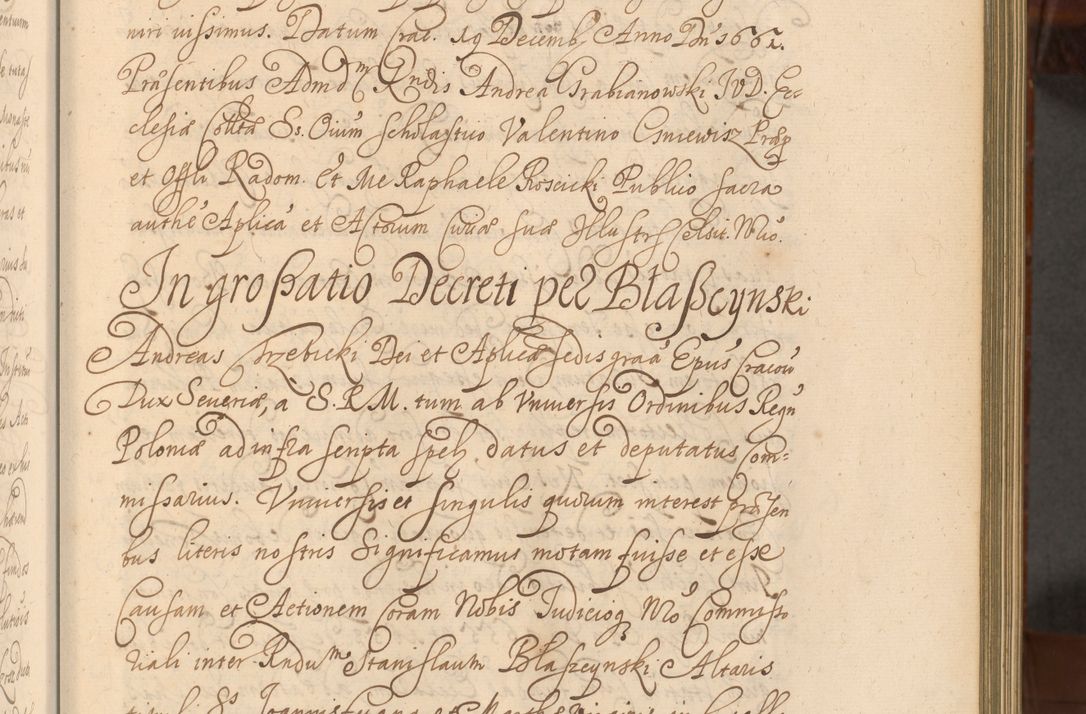 niri iussimus. Datum Crac. 19 Decemb. Anno Dni 1661.
Præsentibus Admdm Rndis Andrea Grabianowski IVD. Ec=
clesiæ Colltæ Ss. Oium Scholastico Valentino Csniewisz Præp
et Offli Radom. Et Me Raphaele Roscicki Publico Sacra
authe Aplica et Actorum Curiæ suæ Illustr Celsit. Nrio.
Ingrossatio Decreti per Błaszcynski
Andreas Trzebicki Dei et Aplicæ Sedis graa Epus Cracou
Dux Seueriæ, a S. R. M. tum ab Vniuersis Ordinibus Regn
Poloniæ ad infra scripta spelr datus et deputatus Com=
missarius. Vniuersis et singulis quorum interest præsen
bus literis nostris Significamus motam fuisse et esse
Causam et Actionem Coram Nobis Iudicioq Nro Commisso
riali inter Rndum Stanislaum Błaszcynski Altaris